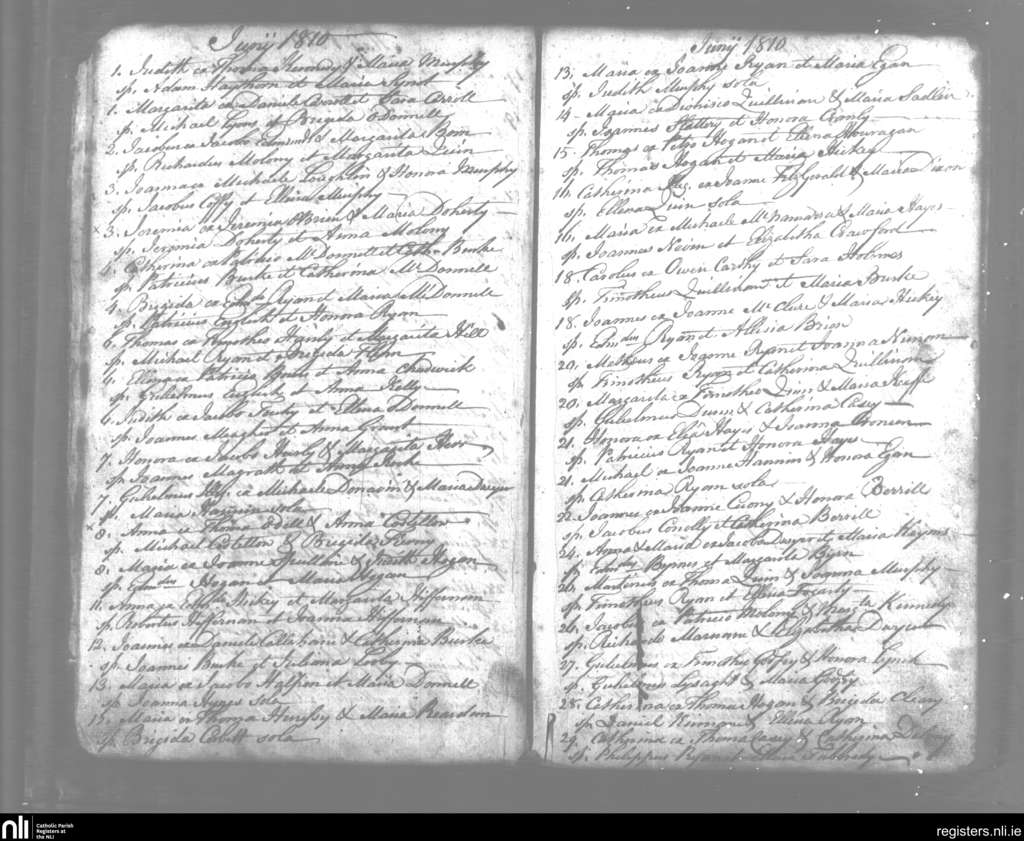 Junij 1810
1. Judith ex Thoma Kennedy & Maria Murphy
sp. Adam Haythorn et Maria Synot
1. Margarita ex Daniele Carroll et Sara Carroll
sp. Michael Lyons et Brigida O Donnell
2. Jacobus ex Jacobo Edmunds Margarita
sp. Richardus Molony et Margarita Quin
3. Joanna ex Michaele Loughlin & Honora Murphy
sp. Jacobus Coffy et Ellena Murphy
× 3. Jeremia ex Jeremia OBrien & Maria Doherty
sp. Jeremia Doherty et Anna Molony
4. Catherina ex Patricio McDonnell et Cath Burke
sp. Patricius Burke et Catherina McDonnell
4. Brigida ex Edmdo Ryan et Maria McDonnell
sp. Patricius English et Honora Ryan
6. Thomas ex Timotheo et Margarita Hill
sp. Michael Ryan et Brigida Flynn
Patricio et Anna Chadwick
sp. Gulielmus English et Anna Kelly
6. Judith ex Jacobo et Ellena ODonnell
sp. Joannes Meagher et Anna Grant
7. Honora ex Jacobo Hurly & Margarita
sp. Joannes Magrath et Anna Burke
7. Gulielmus Illeg. ex Michaele Donovin & Maria Dwyer
sp. Maria sola
× 8. Anna ex Thoma Odell & Anna Costellow
sp. Michael Costellow & Brigida
8. Maria ex Joanne & Judith Hogan
sp. Edmdus Hogan et Maria Hogan
11. Anna ex Hickey et Margarita Heffernan
sp. Robertus Heffernan et Joanna Heffernan
12. Joannes ex Daniele Callahane & Catherina Burke
sp. Joannes Burke et Juliana Looby
13. Maria ex Jacobo Halfpen et Maria Donnell
sp. Joanna Hayes Sola
13. Maria ex Thoma Henesy & Maria Reardon
sp. Brigida Corbett sola
Junij 1810
13. Maria ex Joanne Ryan et Maria Egan
sp. Judith Murphy sola
14. Maria ex Dionisio Quillinan & Maria Sadleir
sp. Joannes Slattery et Honora
15. Thomas ex Petro Hogan et Ellena Houragan
sp. Thomas Hogan et Maria Hickey
16. Catherina Illeg. ex Joanne Fitzgerald & Maria Dixon
sp. Ellena Quin sola
16. Maria ex Michaele McNamara & Maria Hayes
sp. Joannes Nevin et Elizabetha Crawford
18. Carolus ex Owen Carthy et Sara Holmes
sp. Timotheus Quillenan et Maria Burke
18. Joannes ex Joanne McClure & Maria Hickey
sp. Edmdus Ryan et Alicia Brien
20. ex Ryan et Joanna Noonan
sp. Timotheus Ryan et Catherina Quillinan
20. Margarita ex Timotheo Quin & Maria Keeffe
sp. Gulielmus Dunn & Catherina Casey
21. Honora ex Hayes & Joanna
sp. Patricius Ryan et Honora Hayes
21. Michael ex Joanne Hannin & Honora Egan
sp. Catherina Ryan sola
22. Joannes ex Joanne & Honora Berrill
sp. Jacobus Conolly et Catherina Berrill
24. Anna & Maria ex Jacobo Dwyer et Maria
sp. Byrnes et Margarita Byrn
26. Martinus ex Thoma Quin & Joanna Murphy
sp. Timotheus Ryan et Fogarty
26. Jacobus ex Patricio Molony & Kennedy
sp. Richard & Elizabetha Dwyer
27. Gulielmus ex Timotheo & Honora Lynch
sp. Gulielmus Lysaght & Maria
28. Catherina ex Thoma Hogan & Brigida Cleary
sp. Daniel & Ellena Ryan
29. Catherina ex Thoma Casey & Catherina
sp. Philippus Ryan et
nli
Catholic Parish
Registers at
the NLI
registers.nli.ie